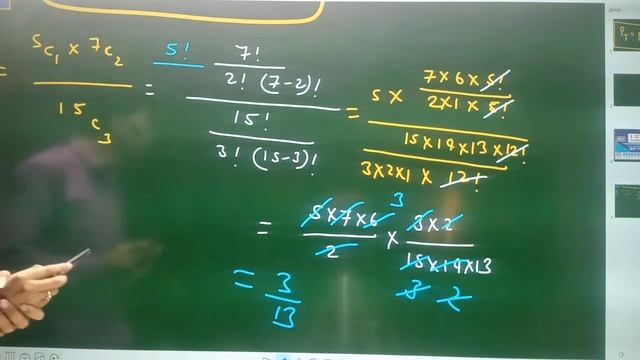 = 5c₁ × 7c₂ / 15c₃ = 5! 7! / 2! (7-2)! / 15! / 3! (15-3)! = 5 × 7×6×5! / 2×1×5! / 15×14×13×12! / 3×2×1 × 12!
= 5×7×6 / 2 × 3×2 / 15×14×13
3
3 2
= 3 / 13